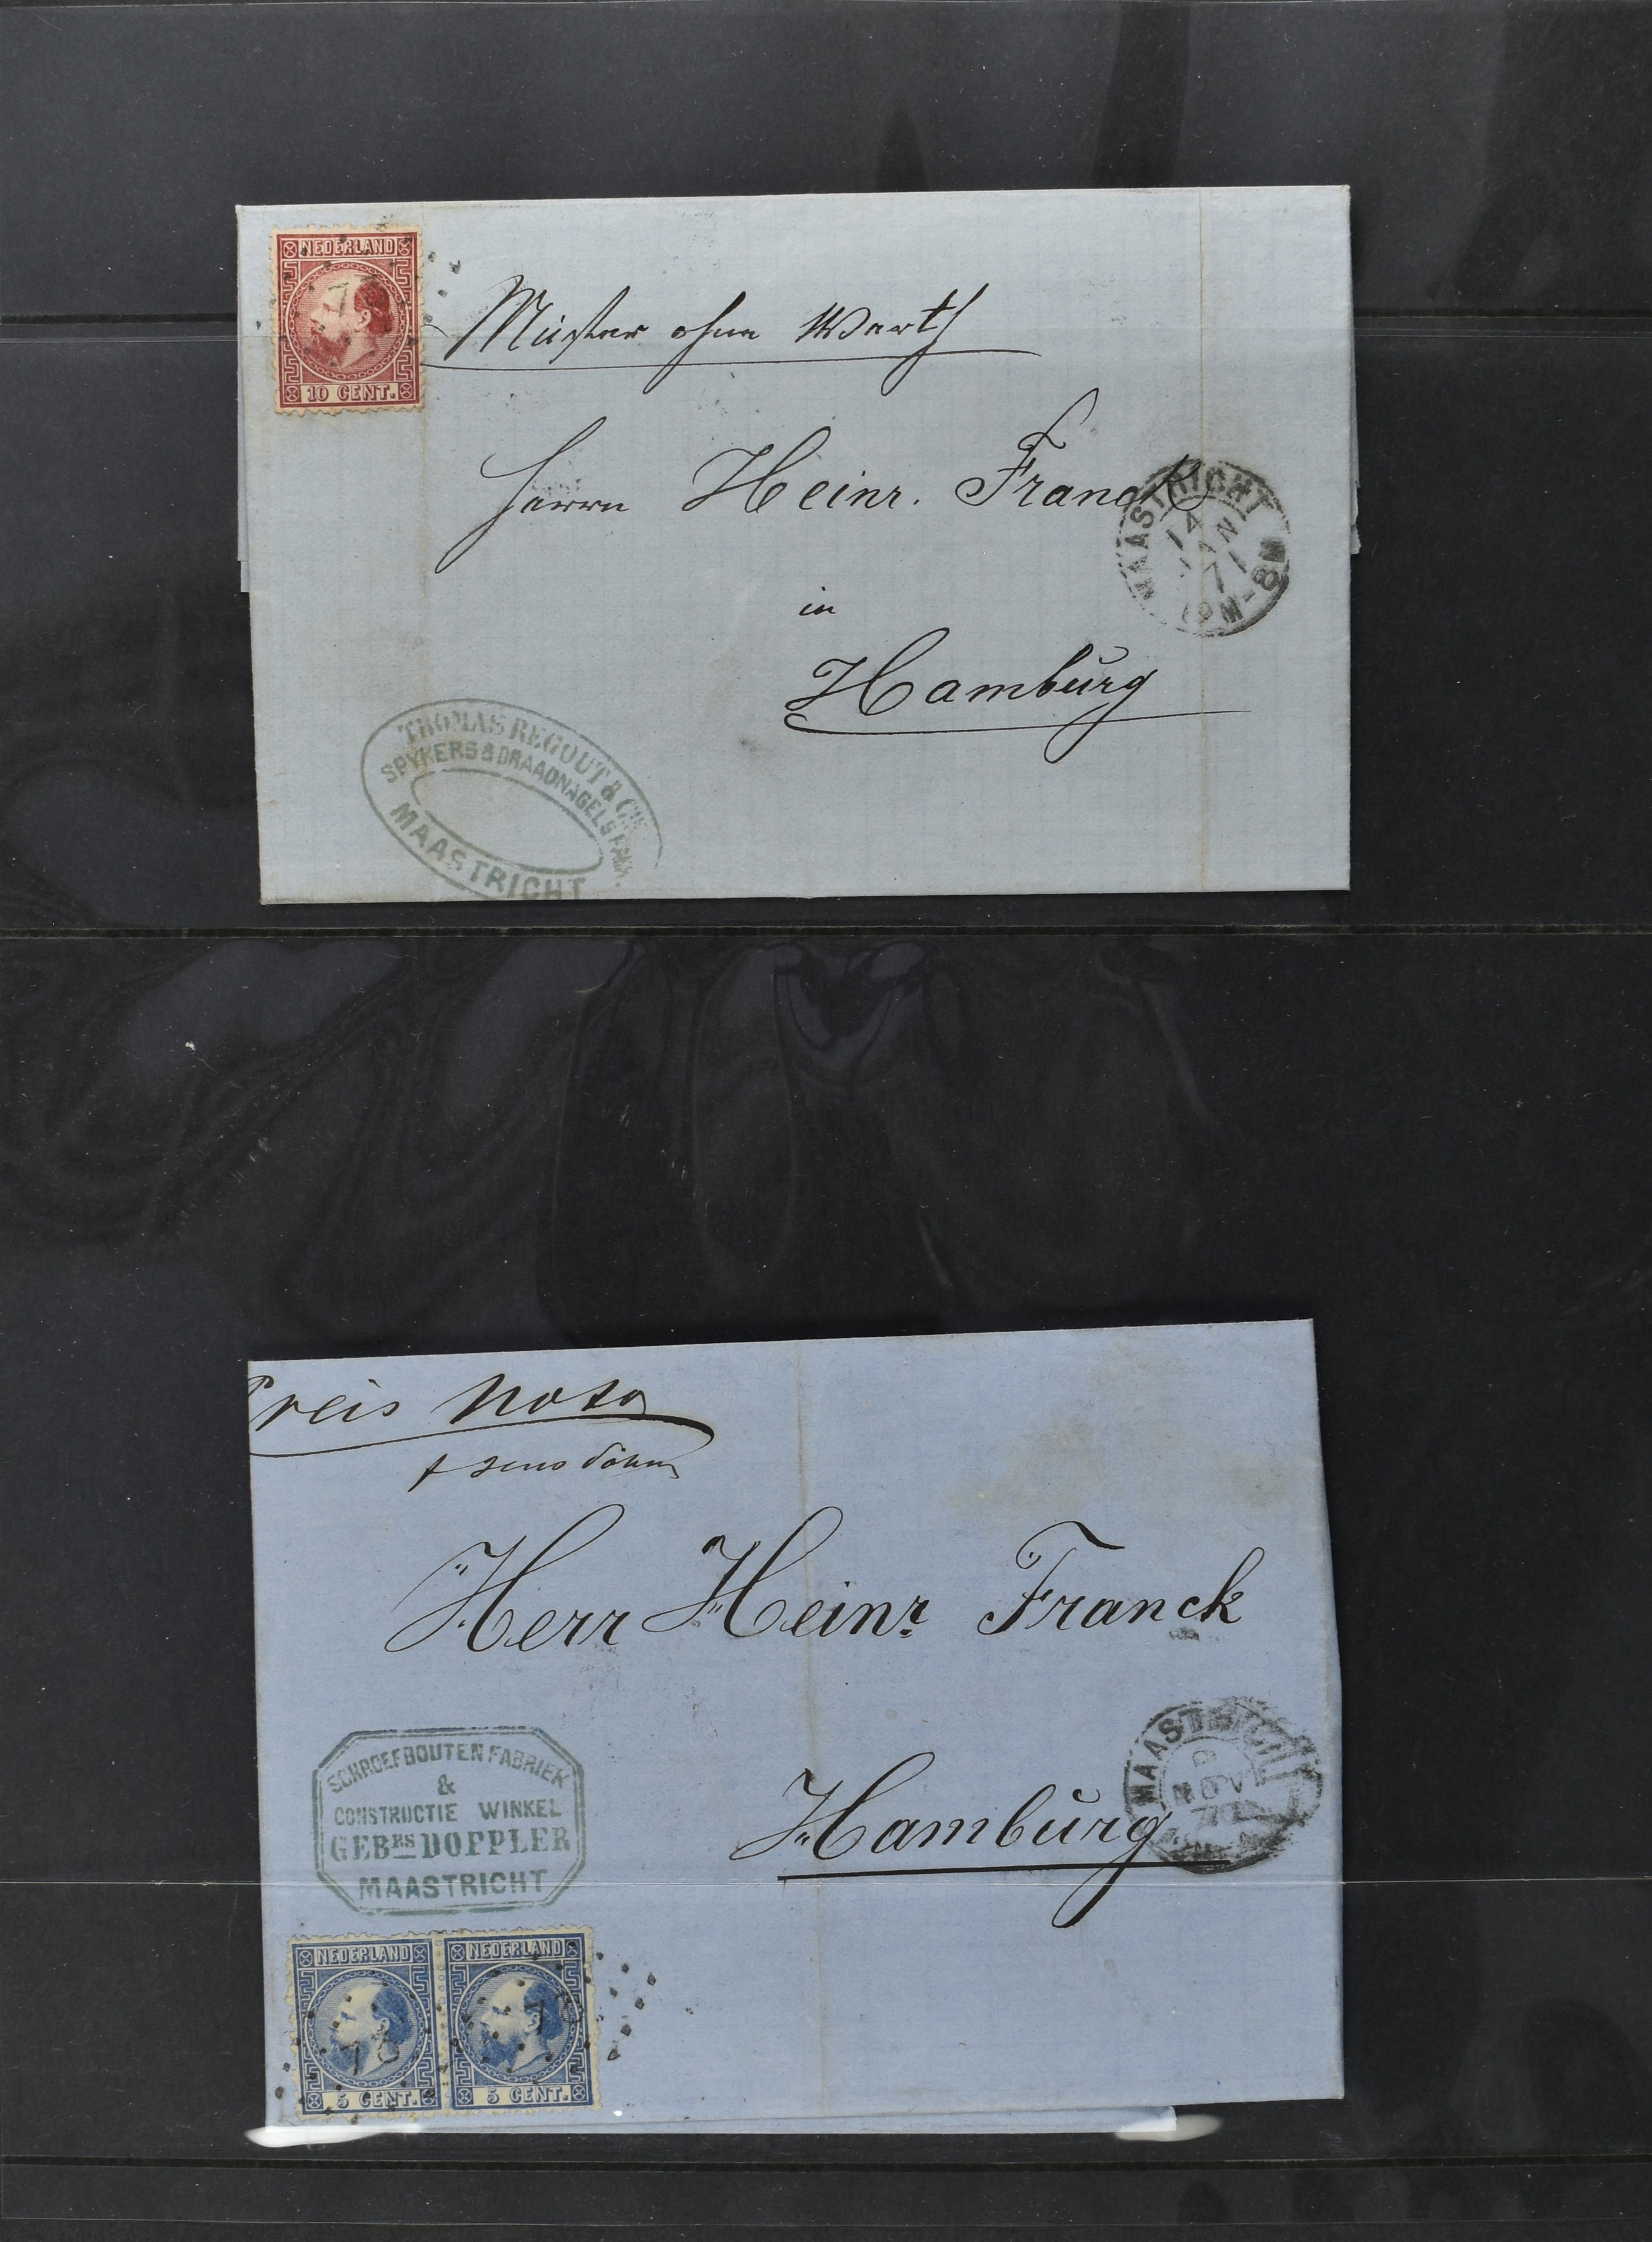 NEDERLAND
10 CENT.
Muster ohne Werth
Herrn Heinr. Franck
MAASTRICHT
14
JAN
71
8M
in
Hamburg
THOMAS REGOUT & CIE
SPYKERS & DRAADNAGELS FABR.
MAASTRICHT
Preis Nota
Herr Heinr Franck
MAASTRICHT
NOV
70
Hamburg
SCHROEFBOUTEN FABRIEK
&
CONSTRUCTIE WINKEL
GEBRS DOPPLER
MAASTRICHT
NEDERLAND NEDERLAND
73
5 CENT. 5 CENT.